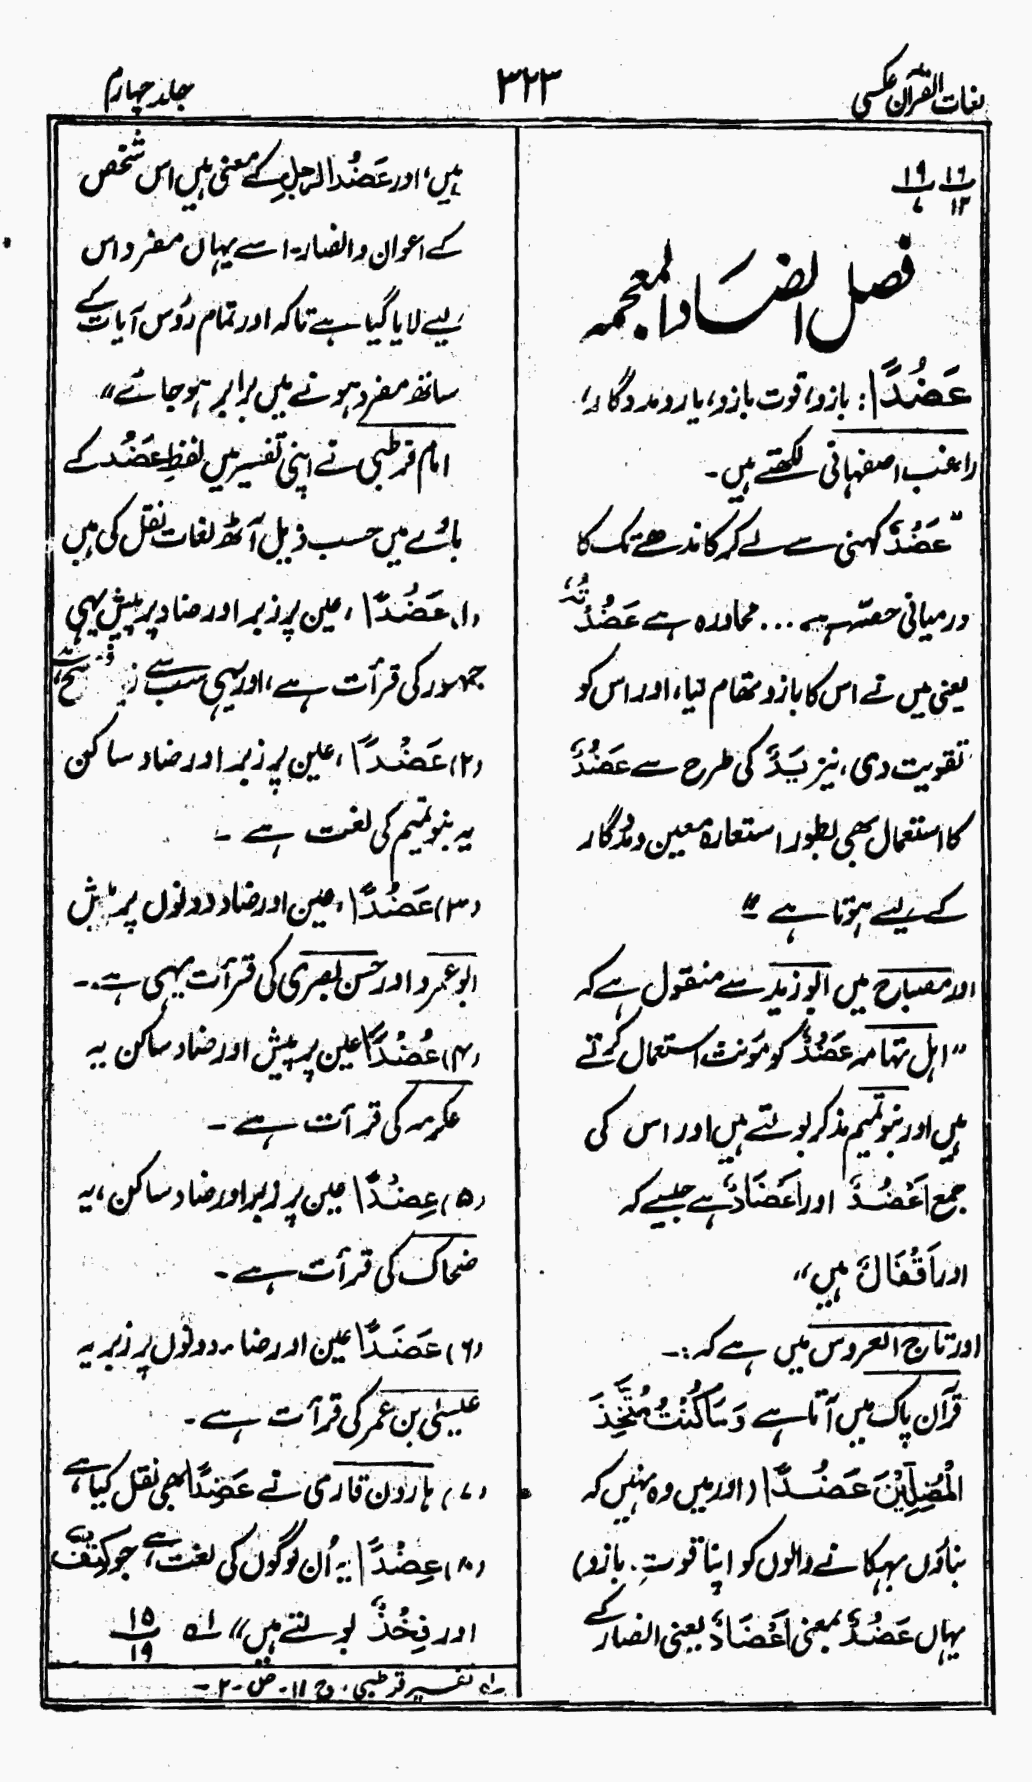 لغات القرآن عکسی
۳۲۳
جلد چہارم
۱۶/۱۲ ۱۹/۷
فصل الضاد المعجمہ
عَضُدًا: بازو، قوت بازو، یار و مددگار،
راغب اصفہانی لکھتے ہیں۔
"عَضُدٌ کہنی سے لے کر کاندھے تک کا
درمیانی حصّہ ہے ... محاورہ ہے عَضُدْتُہٗ
یعنی میں نے اس کا بازو تھام لیا، اور اس کو
تقویت دی، نیز یَدٌ کی طرح سے عَضُدٌ
کا استعمال بھی بطور استعارہ معین و مددگار
کے لیے ہوتا ہے"
اور مصباح میں ابو زید سے منقول ہے کہ
"اہل تہامہ عَضُدٌ کو مؤنث استعمال کرتے
ہیں اور بنو تمیم مذکر بولتے ہیں اور اس کی
جمع اَعْضُدٌ اور اَعْضَادٌ ہے جیسے کہ
اور اَقْفَالٌ ہیں"
اور تاج العروس میں ہے کہ:۔
قرآن پاک میں آتا ہے وَمَا کُنْتُ مُتَّخِذَ
الْمُضِلِّیْنَ عَضُدًا (اور میں وہ نہیں کہ
بناؤں بہکانے والوں کو اپنا قوتِ بازو)
یہاں عَضُدٌ بمعنی اَعْضَادٌ یعنی انصار کے
ہیں، اور عَضُدُ الرجلِ کے معنی ہیں اس شخص
کے اعوان و انصار۔ اسے یہاں مفرد اس
لیے لایا گیا ہے تاکہ اور تمام رؤس آیات کے
ساتھ مفرد ہونے میں برابر ہو جائے"
امام قرطبی نے اپنی تفسیر میں لفظِ عَضُد کے
بارے میں حسب ذیل آٹھ لغات نقل کی ہیں
(۱) عَضُدًا، عین پر زبر اور ضاد پر پیش یہی
جمہور کی قرأت ہے، اور یہی سب سے فصیح ہے
(۲) عَضْدًا، عین پر زبر اور ضاد ساکن
یہ بنو تمیم کی لغت ہے۔
(۳) عَضُدًا، عین اور ضاد دونوں پر پیش
ابو عمرو اور حسن بصری کی قرأت یہی ہے۔
(۴) عُضْدًا عین پر پیش اور ضاد ساکن یہ
عکرمہ کی قرأت ہے۔
(۵) عِضْدًا عین پر زبر اور ضاد ساکن، یہ
ضحاک کی قرأت ہے۔
(۶) عَضَدًا عین اور ضاد دونوں پر زبر یہ
عیسیٰ بن عمر کی قرأت ہے۔
(۷) ہارون قاری نے عَضِدًا بھی نقل کیا ہے
(۸) عِضْدًا یہ اُن لوگوں کی لغت ہے، جو کِتْفٌ
اور فِخْذٌ بولتے ہیں" ۱ ۱۵/۱۹
۱ تفسیر قرطبی، ج ۱۱۔ ص ۲۔